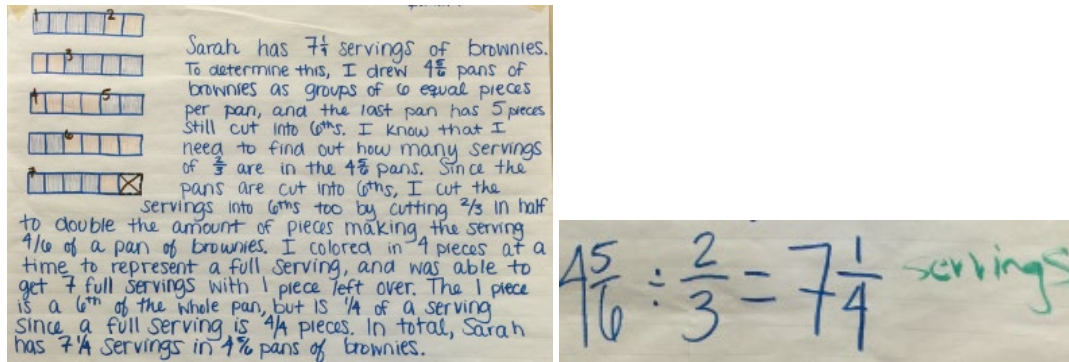 1 2
3
4 5
6
7
Sarah has 7 1/4 servings of brownies.
To determine this, I drew 4 5/6 pans of
brownies as groups of 6 equal pieces
per pan, and the last pan has 5 pieces
still cut into 6ths. I know that I
need to find out how many servings
of 2/3 are in the 4 5/6 pans. Since the
pans are cut into 6ths, I cut the
servings into 6ths too by cutting 2/3 in half
to double the amount of pieces making the serving
4/6 of a pan of brownies. I colored in 4 pieces at a
time to represent a full serving, and was able to
get 7 full servings with 1 piece left over. The 1 piece
is a 6th of the whole pan, but is 1/4 of a serving
since a full serving is 4/4 pieces. In total, Sarah
has 7 1/4 servings in 4 5/6 pans of brownies.
4 5/6 ÷ 2/3 = 7 1/4 servings